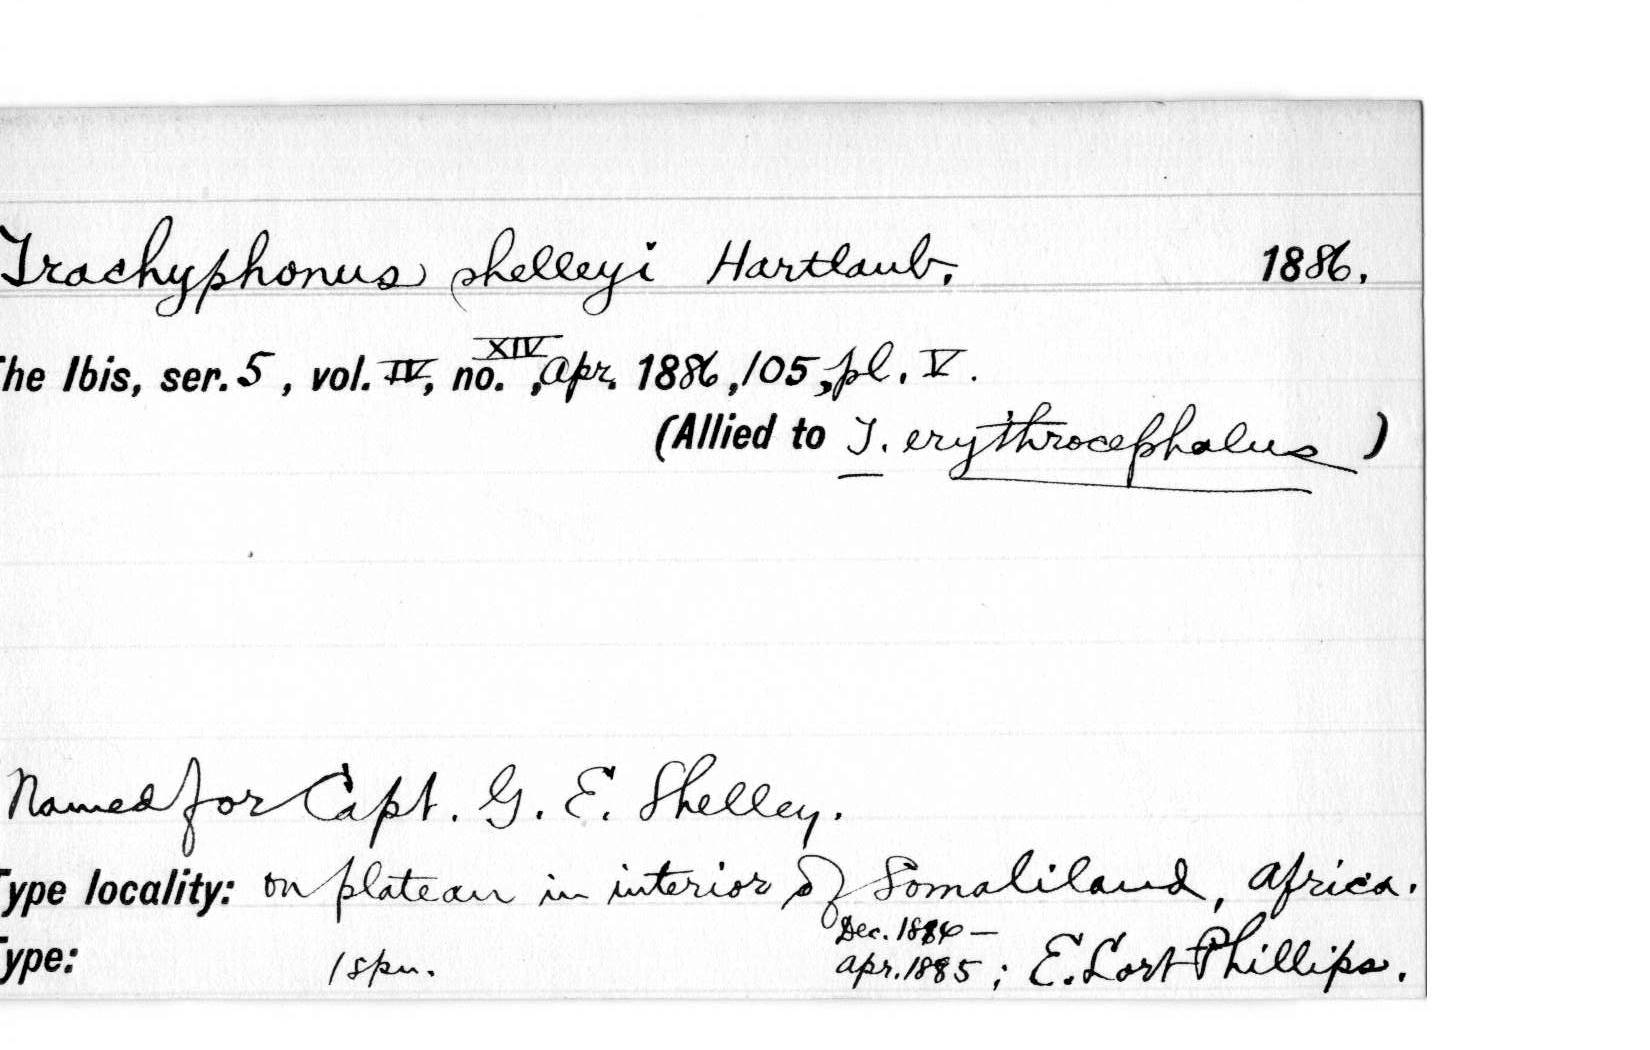 Trachyphonus shelleyi Hartlaub. 1886.
The Ibis, ser. 5, vol. IV, no. XIV, Apr. 1886, 105, pl. V.
(Allied to T. erythrocephalus)
Named for Capt. G. E. Shelley.
Type locality: on plateau in interior of Somaliland, Africa.
Type: 1 spn. Dec. 1884 - Apr. 1885; E. Lort Phillips.